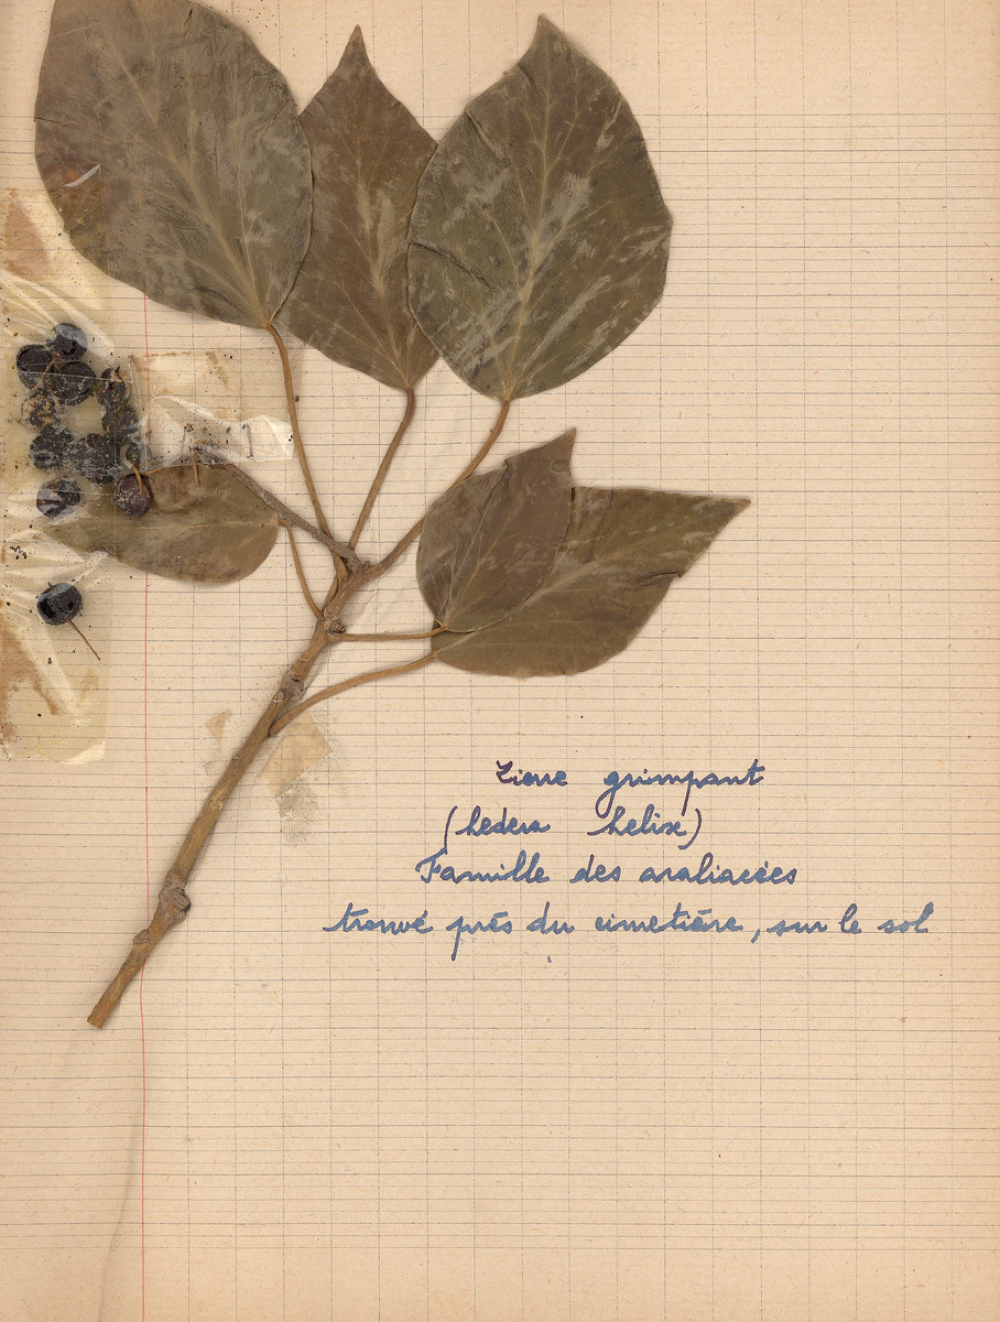 Lierre grimpant
(hedera helix)
Famille des araliacées
trouvé près du cimetière, sur le sol